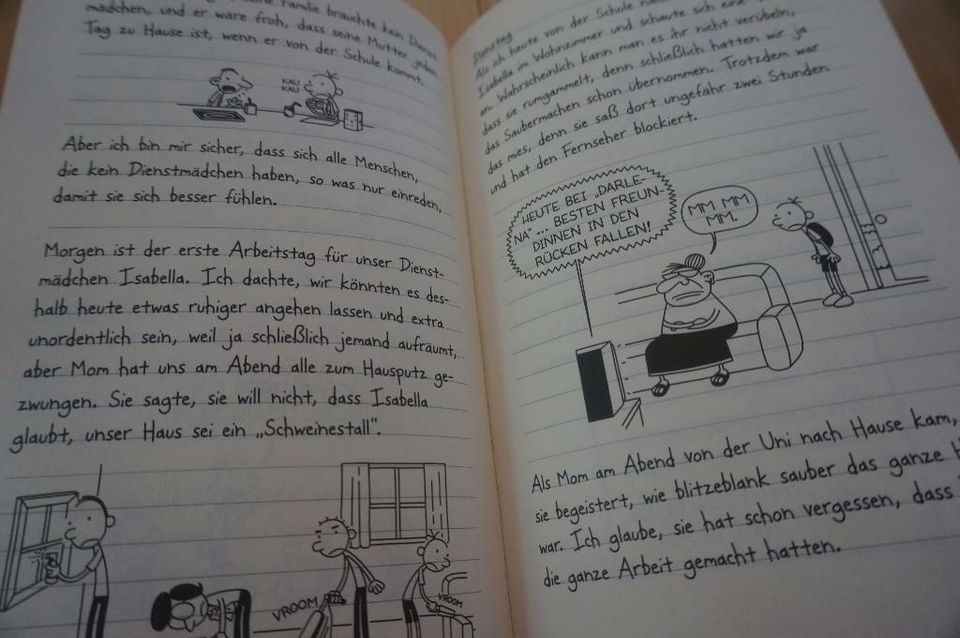 Familie brauchte kein Dienst-
mädchen, und er wäre froh, dass seine Mutter jeden
Tag zu Hause ist, wenn er von der Schule kommt.
KAU
KAU
Aber ich bin mir sicher, dass sich alle Menschen,
die kein Dienstmädchen haben, so was nur einreden,
damit sie sich besser fühlen.
Morgen ist der erste Arbeitstag für unser Dienst-
mädchen Isabella. Ich dachte, wir könnten es des-
halb heute etwas ruhiger angehen lassen und extra
unordentlich sein, weil ja schließlich jemand aufräumt,
aber Mom hat uns am Abend alle zum Hausputz ge-
zwungen. Sie sagte, sie will nicht, dass Isabella
glaubt, unser Haus sei ein „Schweinestall".
VROOM
VROOM
Dienstag
Als ich heute von der Schule
Isabella im Wohnzimmer und schaute sich eine
an. Wahrscheinlich kann man es ihr nicht verübeln,
dass sie rumgammelt, denn schließlich hatten wir ja
das Saubermachen schon übernommen. Trotzdem war
das mies, denn sie saß dort ungefähr zwei Stunden
und hat den Fernseher blockiert.
HEUTE BEI „DARLE-
NA"... BESTEN FREUN-
DINNEN IN DEN
RÜCKEN FALLEN!
MM MM
MM.
Als Mom am Abend von der Uni nach Hause kam,
sie begeistert, wie blitzeblank sauber das ganze
war. Ich glaube, sie hat schon vergessen, dass
die ganze Arbeit gemacht hatten.